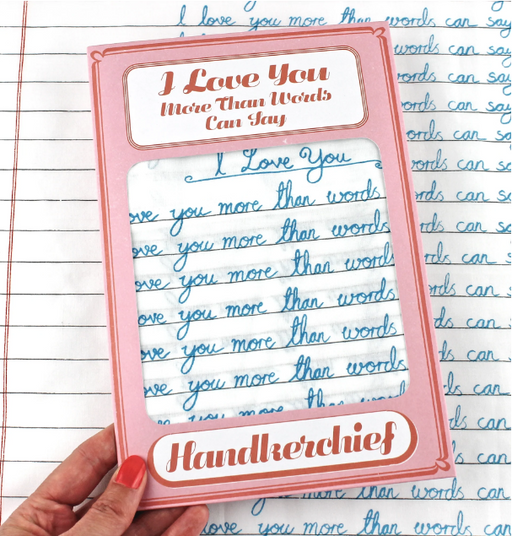 I love you more than words can say
words can say
words can say
words can say
words can say
I Love You
More Than Words
Can Say
I Love You
ove you more than words
ove you more than words
ove you more than words
ove you more than words
ove you more than words
ove you more than words
ove you more than words
you more than words
Handkerchief
ords can say
rds can
rds can
rds can
ds can
ds can
ds can
s can
can
more than words can
love you more than words can